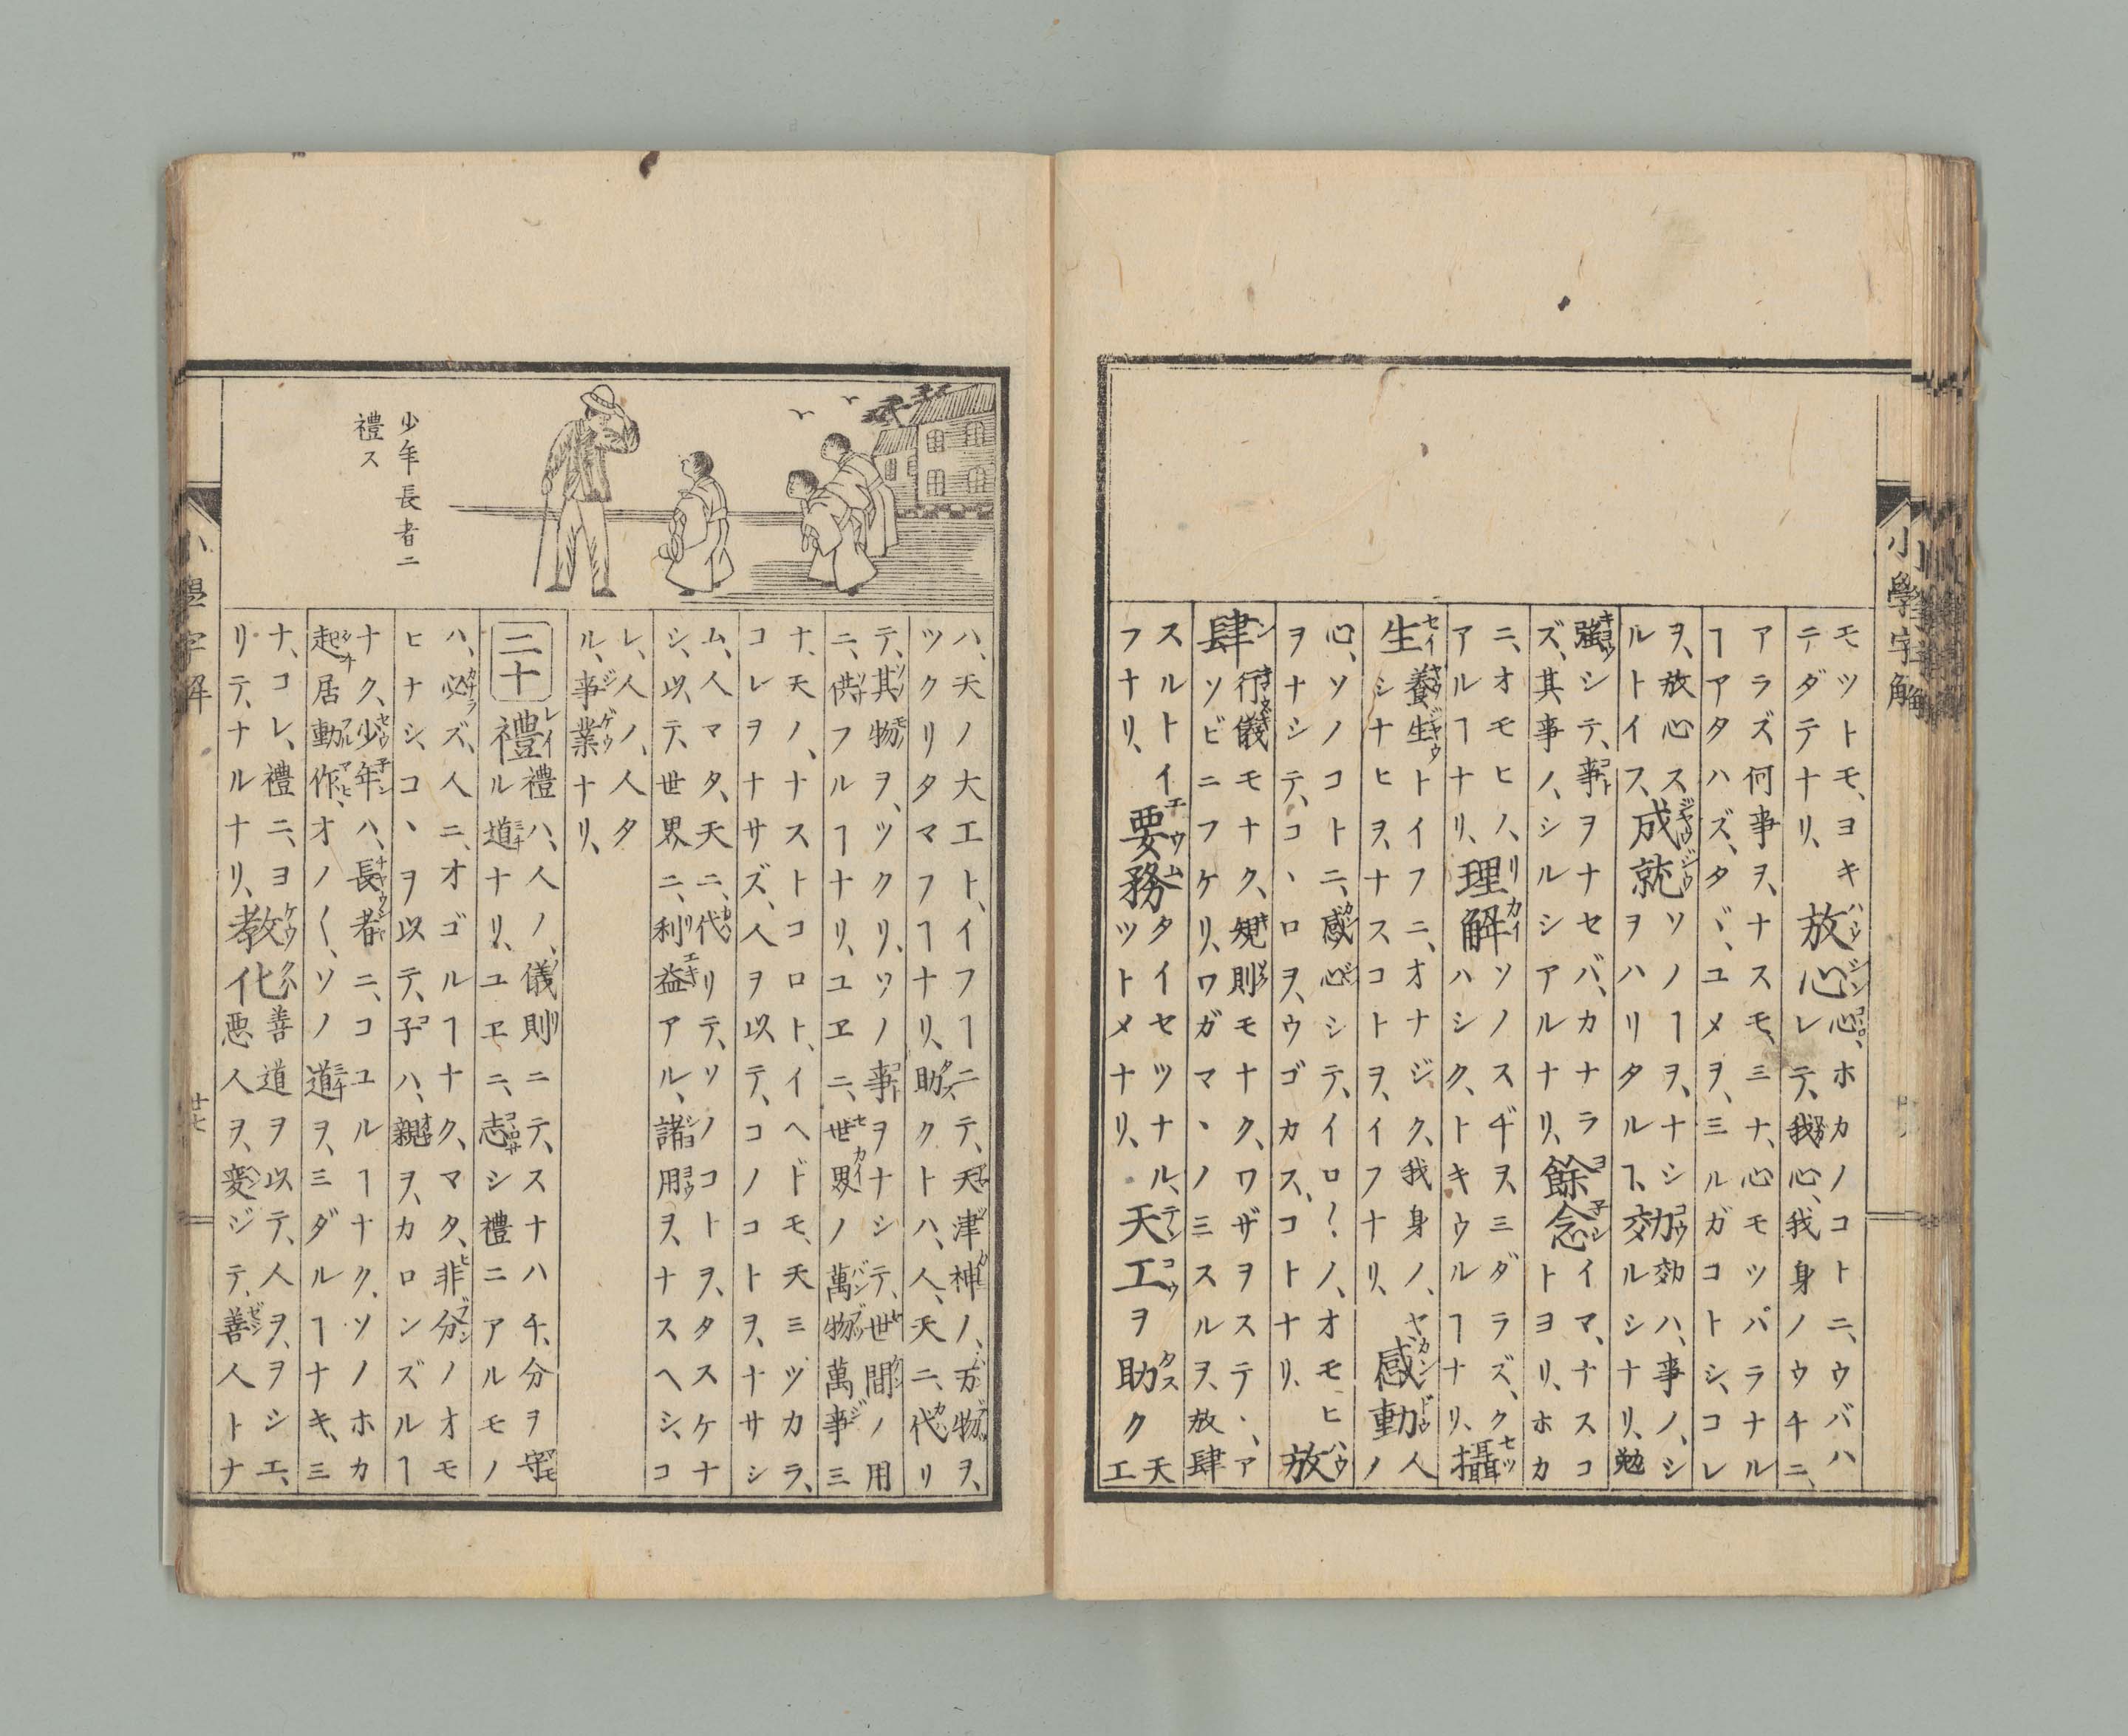 小學字解
モツトモ、ヨキ
テダテナリ、
放心
心、ホカノコトニ、ウバハ
レテ、我心、我身ノウチニ、
アラズ何事ヲ、ナスモ、ミナ、心モツパラナル
ヿアタハズ、タヾ、ユメヲ、ミルガコトシ、コレ
ヲ、放心ス
ルトイス、
成就
ソノヿヲ、ナシ
ヲハリタルヿ、
効
効ハ、事ノ、シ
ルシナリ、勉
強シテ、事ヲナセバ、カナラ
ズ、其事ノ、シルシアルナリ、
餘念
イマ、ナスコ
トヨリ、ホカ
ニ、オモヒノ、
アルヿナリ、
理解
ソノスヂヲ、ミダラズ、ク
ハシク、トキウルヿナリ、
攝
生
養生トイフニ、オナジク、我身ノ、ヤ
シナヒヲ、ナスコトヲ、イフナリ、
感動
人
ノ
心、ソノコトニ、感心シテ、イロ〱ノ、オモヒ
ヲナシテ、コヽロヲ、ウゴカス、コトナリ、
放
肆
行儀モナク、規則モナク、ワザヲステヽ、ア
ソビニフケリ、ワガマヽノミスルヲ、放肆
スルトイ
フナリ、
要務
タイセツナル、
ツトメナリ、
天工ヲ助ク
天
工
少年長者ニ
禮ス
ハ、天ノ大工ト、イフヿニテ、天津神ノ、万物ヲ、
ツクリタマフヿナリ、助クトハ、人、天ニ、代リ
テ、其物ヲ、ツクリ、ソノ事ヲナシテ、世間ノ用
ニ、供フルヿナリ、ユヱニ、世界ノ萬物萬事ミ
ナ、天ノ、ナストコロト、イヘドモ、天ミツカラ、
コレヲナサズ、人ヲ以テ、コノコトヲ、ナサシ
ム、人マタ、天ニ、代リテ、ソノコトヲ、タスケナ
シ、以テ、世界ニ、利益アル、諸用ヲ、ナスヘシ、コ
レ、人ノ、人タ
ル、事業ナリ、
二十
禮
禮ハ、人ノ、儀則ニテ、スナハチ、分ヲ守
ル道ナリ、ユヱニ、志シ禮ニアルモノ
ハ、必ズ、人ニ、オゴルヿナク、マタ、非分ノオモ
ヒナシ、コヽヲ以テ、子ハ、親ヲ、カロンズルヿ
ナク、少年ハ、長者ニ、コユルヿナク、ソノホカ
起居動作、オノ〱、ソノ道ヲ、ミダルヿナキ、ミ
ナ、コレ、禮ニ、ヨ
リテ、ナルナリ、
教化
善道ヲ以テ、人ヲ、ヲシエ、
悪人ヲ、変ジテ、善人トナ
小學字解
廿七